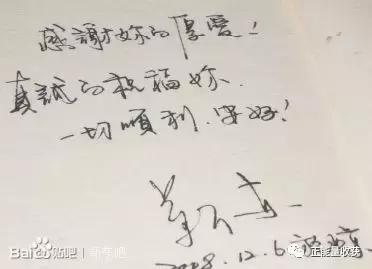 感謝妳的厚愛！
真誠的祝福妳.
一切順利.安好！
2008.12.6
Bai贴吧 | 靳东吧
正能量收获